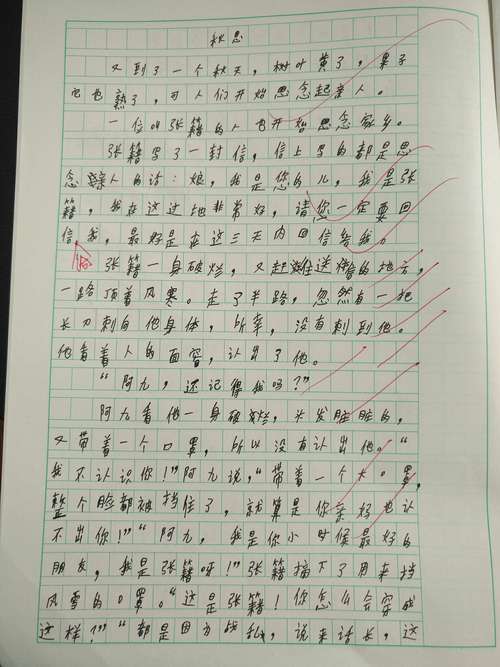 秋思
又到了一个秋天，树叶黄了，果子
也熟了，可人们开始思念起亲人。
一位叫张籍的人也开始思念家乡。
张籍写了一封信，信上写的都是思
念亲人的话：娘，我是您的儿，我是张
籍，我在这过地非常好，请您一定要回
信我，最好是在这三天内回信给我。
给
张籍一身破烂，又赶往送信的地方，
一路顶着风寒。走了半路，忽然有一把
长刀刺向他身体，所幸，没有刺到他。
他看着人的面容，认出了他。
“阿九，还记得我吗？”
阿九看他一身破烂，头发脏脏的，
又带着一个口罩，所以没有认出他。“
我不认识你！”阿九说，“带着一个大口罩，
整个脸都被挡住了，就算是你亲妈也认
不出你！”“阿九，我是你小时候最好的
朋友，我是张籍呀！”张籍摘下了用来挡
风雪的口罩。“这是张籍！你怎么会穿成
这样？”“都是因为战乱，说来话长，这